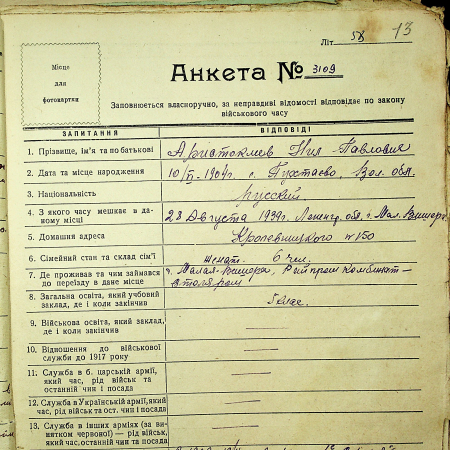 13
Літ. 5ж
Місце
для
фотокартки
Анкета № 3109
Заповнюється власноручно, за неправдиві відомості відповідає по закону
військового часу
ЗАПИТАННЯ ВІДПОВІДІ
1. Прізвище, ім'я та по батькові Нил Павлович
2. Дата та місце народження 10/ 1909г. с. Вол. обл.
3. Національність русский
4. З якого часу мешкає в да-
ному місці 28 Августа 1939г. Ленингр. обл. г. Мал. Вишера
5. Домашня адреса №150
6. Сімейний стан та склад сім'ї женат. 6 чел.
7. Де проживав та чим займався
до переїзду в дане місце г. Малая-Вишера, Райпромкомбинат-
столяром
8. Загальна освіта, який учбовий
заклад, де і коли закінчив 5 клас.
9. Військова освіта, який заклад,
де і коли закінчив
10. Відношення до військової
служби до 1917 року
11. Служба в б. царській армії,
який час, рід військ та
останній чин і посада
12. Служба в Українській армії, який
час, рід військ та ост. чин і посада
13. Служба в інших арміях (за ви-
нятком червоної) — рід військ,
який час, останній чин та посада